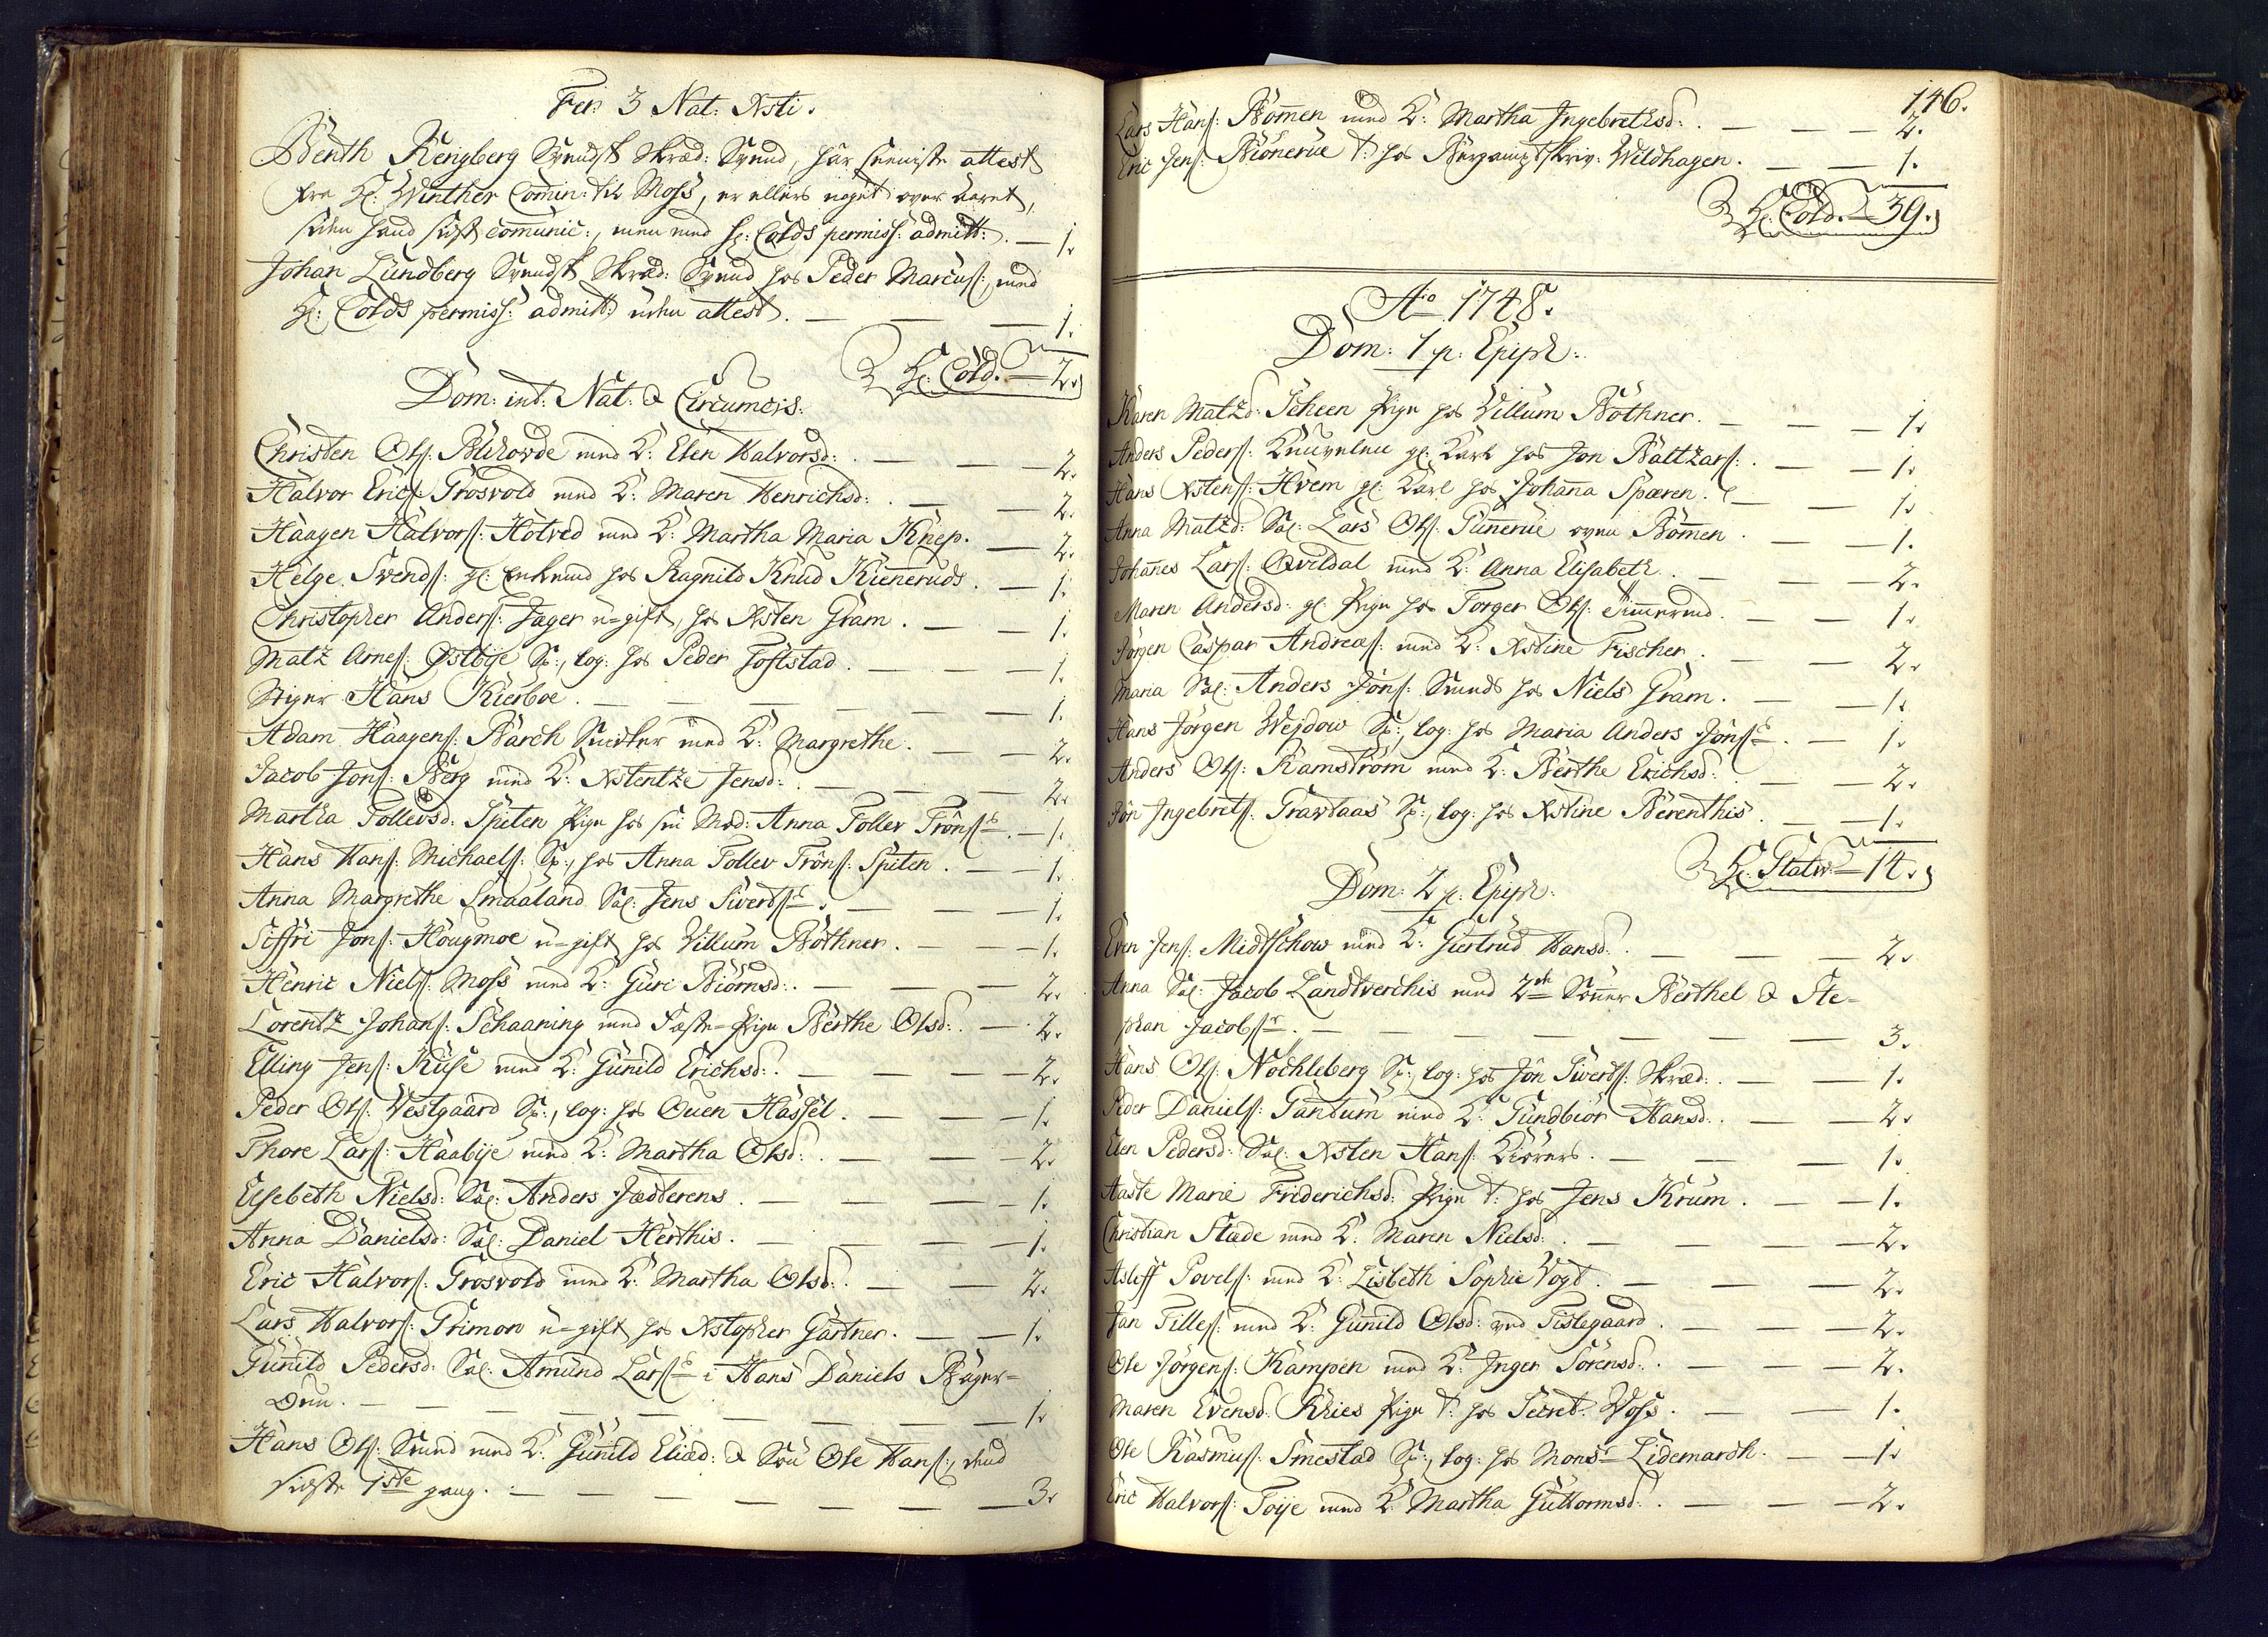 Fer: 3 Nat: Xsti.
Benth Rengberg Svendsk Skræd: Svend, har seeniste attest
fra H: Winther Comin: til Moss, er ellers noget over aaret,
siden hand sidst comunic:, men med H: Colds permiss: admitt: — 1.
Johan Lundberg Svendsk Skræd: Svend hos Peder Marcus:, med
H: Colds permiss: admitt: uden attest. — — — 1.
H: Cold. — 2.
Dom: int: Nat: & Circumcis:
Christen Ols: med K: Elen Halvorsd: — — 2.
Halvor Erics: Grosvold med K: Maren Henrichsd: — — 2.
Haagen Halvors: Hotved med K: Martha Maria Knep. — 2.
Helge Svends: gl: Enkemd hos Ragnild Knud Kienneruds. — 1.
Christopher Anders: Jager u=gift, hos Xsten Gram. — — 1.
Matz Arnes: Østbye S:, log: hos Peder Toftstad. — — 1.
Stiger Hans Kierboe. — — — — 1.
Adam Haagens: Barch Snedker med K: Margrethe. — — 2.
Jacob Jons: Berg med K: Xstentze Jensd: — — — 2.
Martha Tollevsd: Spiten Pige hos sin Mod: Anna Tollev Tröns: — 1.
Hans Hans: Michaels: S:, hos Anna Tollev Tröns: Spiten. — — 1.
Anna Margrethe Smaaland Sal: Jens Siverts: — — — 1.
Siffri Jons: Hougmoe u=gift hos Villum Böthner. — — 1.
Henric Niels: Moss med K: Guri Biörnsd: — — — 2.
Lorentz Johans: Schaaning med Fæste=Pige Berthe Olsd: — 2.
Elling Jens: Ruse med K: Gunild Erichsd: — — — 2.
Peder Ols: Vestgaard S:, log: hos Ouen Hassel. — — — 1.
Thore Lars: Haabye med K: Martha Olsd: — — — 2.
Elsebeth Nielsd: Sal: Anders Jædterens. — — — 1.
Anna Danielsd: Sal: Daniel Herthis. — — — — 1.
Eric Halvors: Grosvold med K: Martha Olsd: — — 2.
Lars Halvors: Grimon u=gift hos Xstopher Gartner. — — 1.
Gunild Pedersd: Sal: Amund Lars: i Hans Daniels Bager=
Ovn. — — — — — — — 1.
Hans Ols: Smed med K: Gunild Eliæd: & Sön Ole Hans:, dend
sidste 1ste gang. — — — — — — — 3.
146.
Lars Hans: Bömmen med K: Martha Ingebrethsd: — — — 2.
Eric Jens: Biönerue T: hos Bergamptskriv: Wildhagen. — — 1.
H: Cold. — 39.
Ao 1748.
Dom: 1 p: Epiph:
Karen Matzd: Scheen Pige hos Villum Böthner. — — — 1.
Anders Peders: gl: Karl hos Jon Baltzars: — — 1.
Hans Xstens: Hvem gl: Karl hos Johanna Spæren. — — 1.
Anna Matzd: Sal: Lars Ols: Tunnerue oven Bömmen. — — 1.
Johannes Lars: Qvildal med K: Anna Elisabeth. — — — 2.
Maren Andersd: gl: Pige hos Torger Ols: Timmermd. — — 1.
Jörgen Caspar Andreas: med K: Xstine Fischer. — — 2.
Maria Sal: Anders Jöns: Smeds hos Niels Gram. — — 1.
Hans Jörgen Wejdow S:, log: hos Maria Anders Jöns: — 1.
Anders Ols: Ramström med K: Berthe Erichsd: — — 2.
Jön Ingebrets: Travlaas S:, log: hos Xstine Berenthis. — — 1.
H: Stativ. — 14.
Dom: 2 p: Epiph:
Even Jens: Midtschow med K: Giertrud Hansd: — — — 2.
Anna Sal: Jacob Landtverchis med 2de Sönner Berthel & Ste=
phan Jacobs: — — — — — — — 3.
Hans Ols: Nochleberg S:, log: hos Jön Siverts: Skræd: — — 1.
Peder Daniels: Gantum med K: Gundbiör Hansd: — — 2.
Elen Pedersd: Sal: Xsten Hans: Kiörers. — — — 1.
Aaste Marie Friderichsd: Pige T: hos Jens Krum. — — 1.
Christian Stæde med K: Maren Nielsd: — — — — 2.
Asleff Povels: med K: Lisbeth Sophie Vogt. — — — 2.
Jan Tilles: med K: Gunild Olsd: ved Tislegaard. — — — 2.
Ole Jörgens: Kampen med K: Inger Sörensd: — — — 2.
Maren Evensd: Kries Pige T: hos Secret: Voss. — — 1.
Ole Rasmus: Smestad S:, log: hos Monsr Lidemarsh. — — 1.
Eric Halvors: Toije med K: Martha Guttormsd: — — — 2.